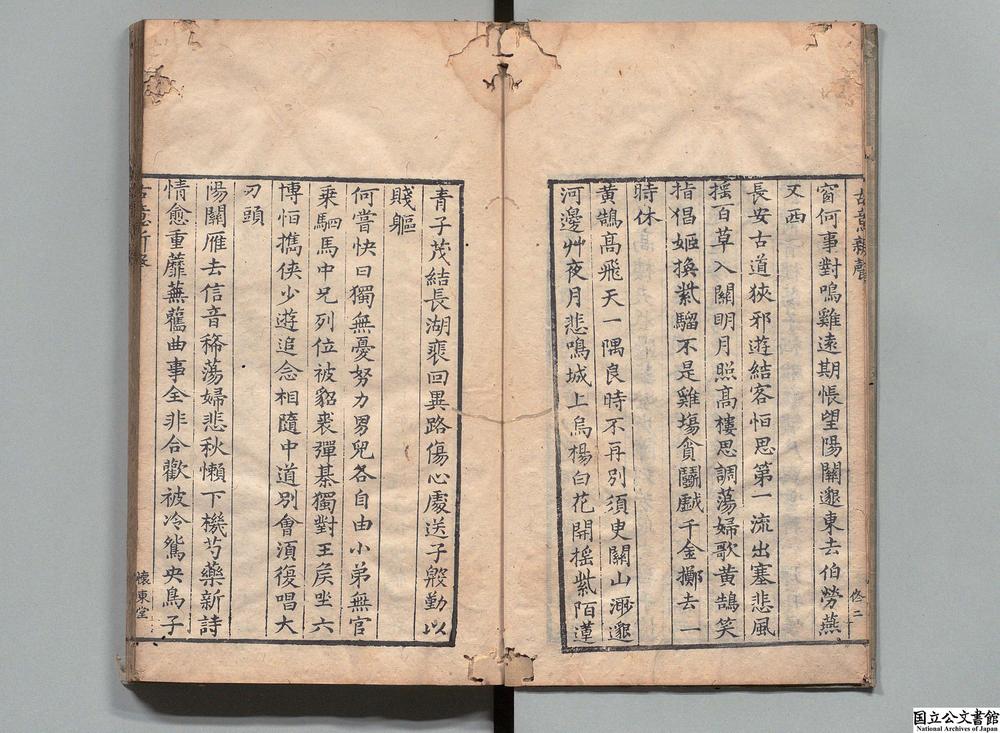 窗何事對鳴雞遠期悵望陽關邈東去伯勞燕
又西
長安古道狹邪遊結客怕思第一流出塞悲風
搖百草入關明月照高樓思調蕩婦歌黃鵠笑
指倡姬換紫騮不是雞塲貪鬭戱千金擲去一
時休
黃鵠高飛天一隅良時不再別須臾關山渺邈
河邊艸夜月悲鳴城上烏楊白花開搖紫陌蓮
青子茂結長湖裵回異路傷心處送子殷勤以
賤軀
何嘗快曰獨無憂努力男兒各自由小弟無官
乘駟馬中兄列位被貂裘彈棊獨對王矦坐六
博怕攜俠少遊追念相隨中道別會湏復唱大
刀頭
陽關雁去信音稀蕩婦悲秋懶下機芍藥新詩
情愈重蘼蕪舊曲事全非合歡被冷鴛央鳥子
懷東堂
国立公文書館
National Archives of Japan